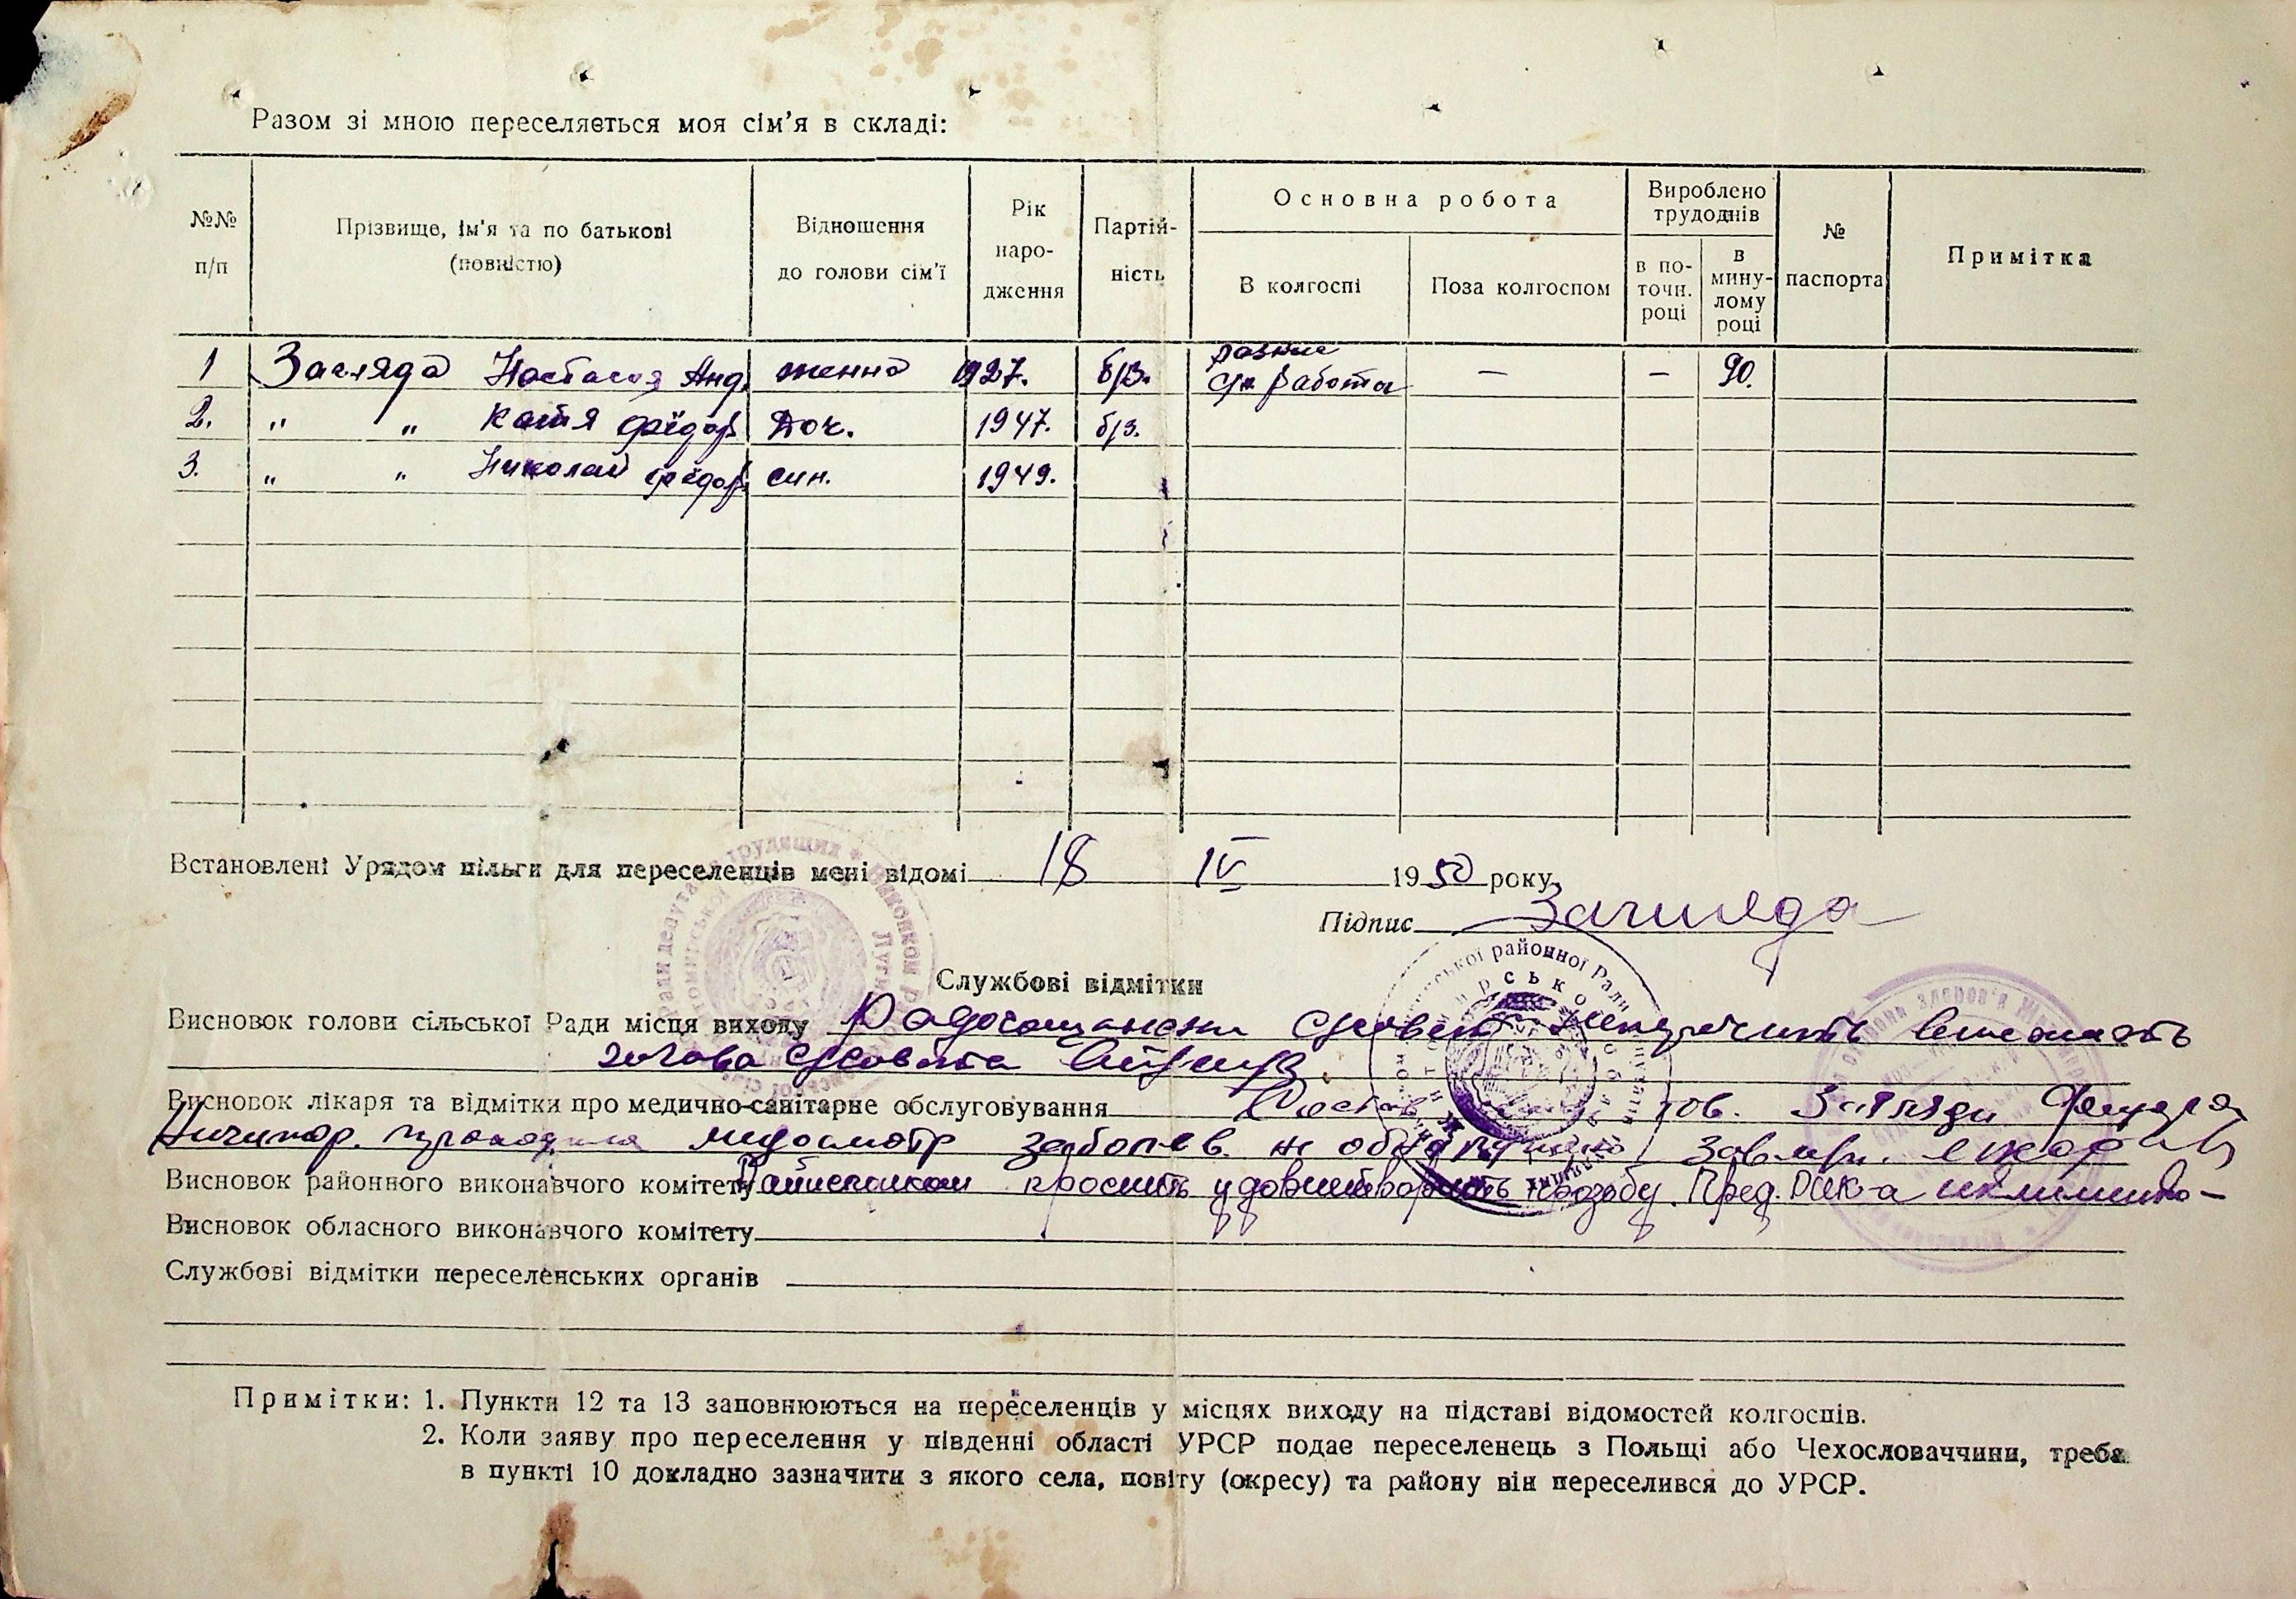 Разом зі мною переселяється моя сім'я в складі:
№№ п/п
Прізвище, ім'я та по батькові (повністю)
Відношення до голови сім'ї
Рік наро-дження
Партій-ність
Основна робота
В колгоспі
Поза колгоспом
Вироблено трудоднів
в по-точн. році
в мину-лому році
№ паспорта
Примітка
1 Загляда Настасия Анд. женна 1927. б/з. разные с/х работы — — 90.
2. " " Катя Фёдор. Доч. 1947. б/з.
3. " " Николай Фёдор. син. 1949.
Встановлені Урядом пільги для переселенців мені відомі 18 IV 1950 року
Підпис Загляда
Службові відмітки
Висновок голови сільської Ради місця виходу
голова с/совета
Висновок лікаря та відмітки про медично-санітарне обслуговування тов. Загляди
медосмотр заболев. не обнаружено
Висновок районного виконавчого комітету Райисполком просить удовлетворить прозьбу. Пред. РИК-а
Висновок обласного виконавчого комітету
Службові відмітки переселенських органів
Примітки: 1. Пункти 12 та 13 заповнюються на переселенців у місцях виходу на підставі відомостей колгоспів.
2. Коли заяву про переселення у південні області УРСР подає переселенець з Польщі або Чехословаччини, треба
в пункті 10 докладно зазначити з якого села, повіту (окресу) та району він переселився до УРСР.